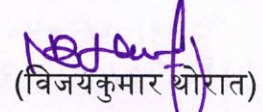 (विजयकुमार थोरात)